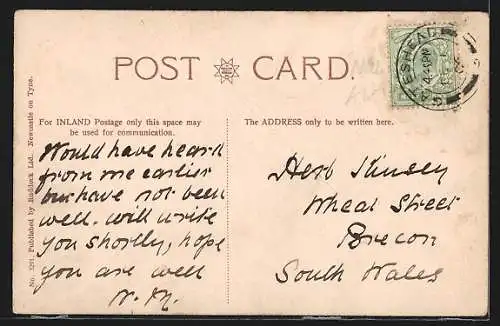 POST CARD.
GATESHEAD
4.45PM
No. 3291. Published by Ruddock Ltd., Newcastle on Tyne.
For INLAND Postage only this space may
be used for communication.
Would have heard
from me earlier
but have not been
well. will write
you shortly, hope
you are well
The ADDRESS only to be written here.
Herb Kinsey
Wheat Street
Brecon
South Wales